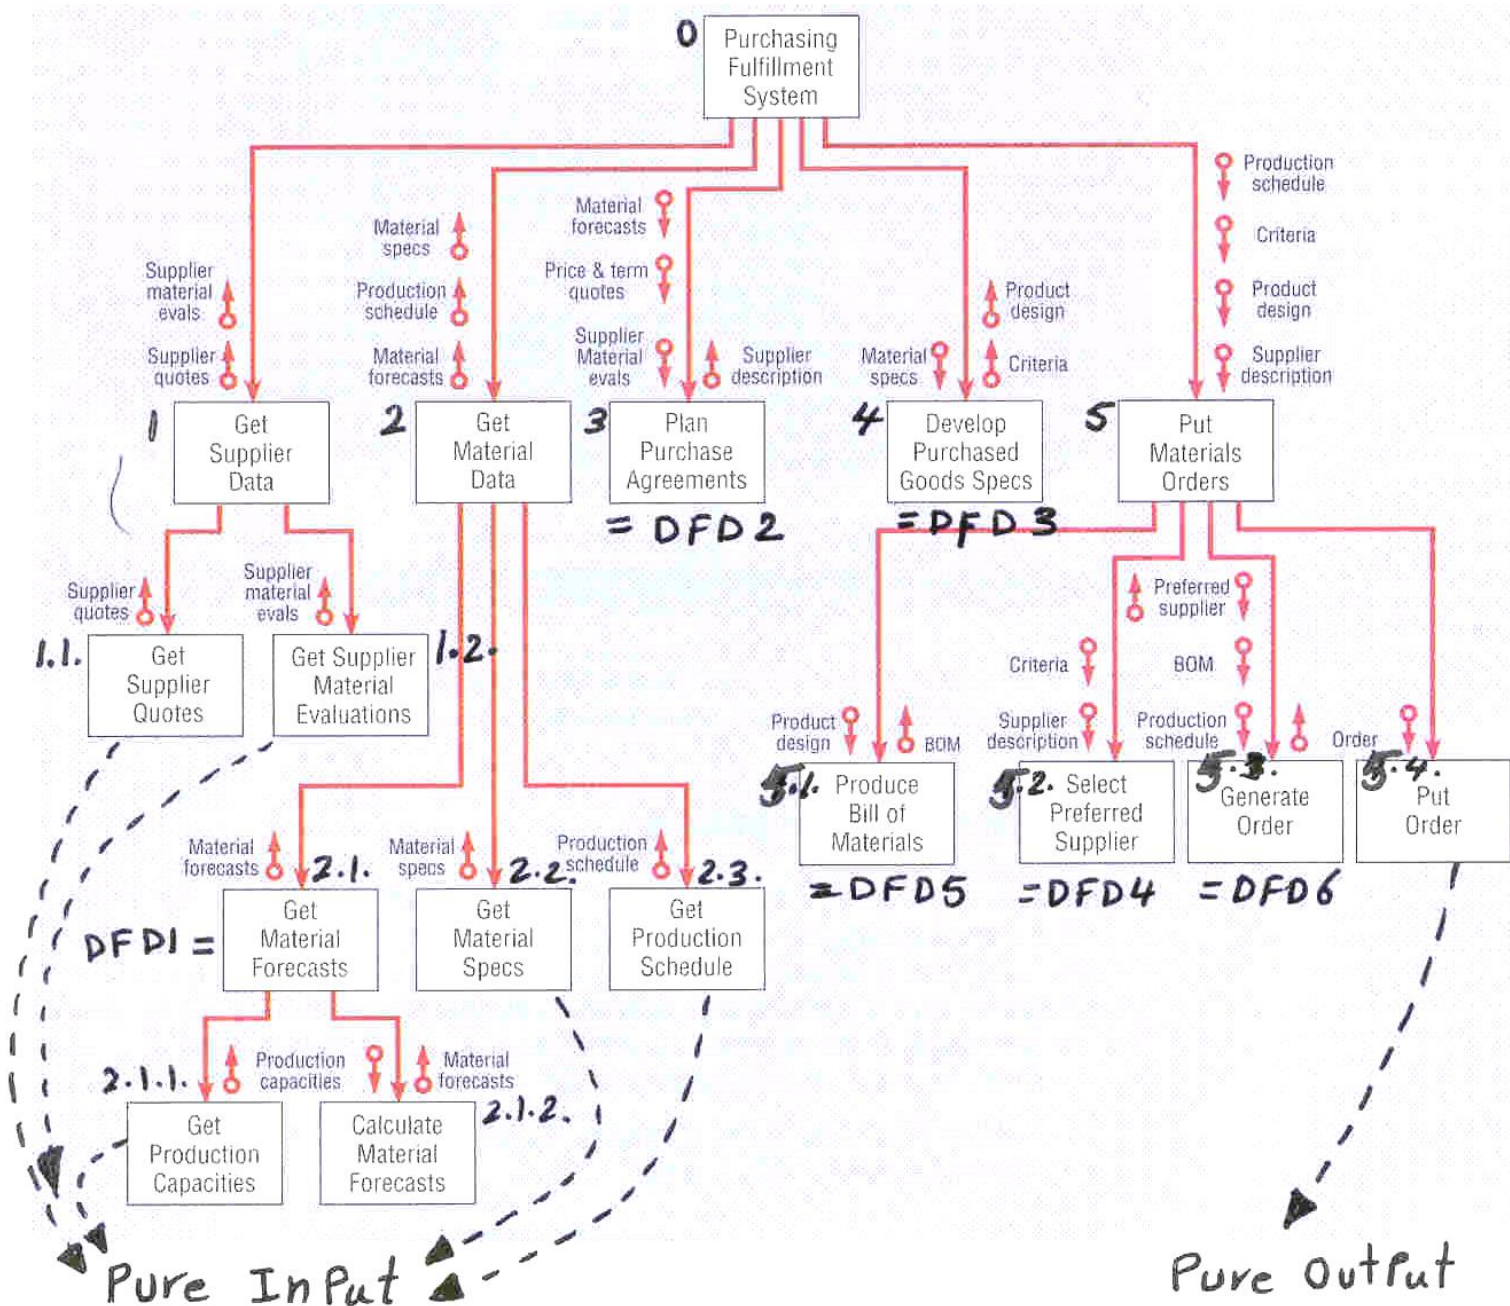 0
Purchasing
Fulfillment
System
Supplier
material
evals
Supplier
quotes
Material
specs
Production
schedule
Material
forecasts
Material
forecasts
Price & term
quotes
Supplier
Material
evals
Supplier
description
Material
specs
Product
design
Criteria
Production
schedule
Criteria
Product
design
Supplier
description
1
Get
Supplier
Data
2
Get
Material
Data
3
Plan
Purchase
Agreements
= DFD2
4
Develop
Purchased
Goods Specs
= DFD3
5
Put
Materials
Orders
Supplier
quotes
Supplier
material
evals
1.1.
Get
Supplier
Quotes
Get Supplier
Material
Evaluations
1.2.
Product
design
BOM
Criteria
Supplier
description
Preferred
supplier
BOM
Production
schedule
Order
5.1.
Produce
Bill of
Materials
= DFD5
5.2.
Select
Preferred
Supplier
= DFD4
5.3.
Generate
Order
= DFD6
5.4.
Put
Order
Material
forecasts
2.1.
Material
specs
2.2.
Production
schedule
2.3.
DFD1 =
Get
Material
Forecasts
Get
Material
Specs
Get
Production
Schedule
Production
capacities
Material
forecasts
2.1.1.
Get
Production
Capacities
Calculate
Material
Forecasts
2.1.2.
Pure InPut
Pure OutPut